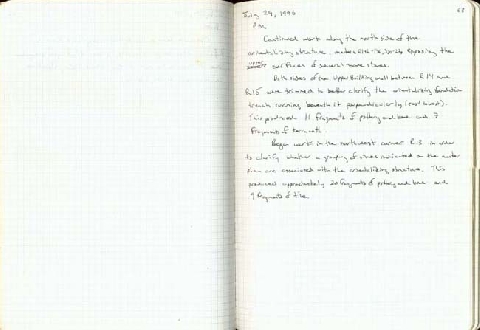 July 29, 1996
68
P.M.
Continued work along the north side of the
orientalizing structure, exposing the
surfaces of several more stones.
Both sides of the Upper Building wall between R14 and
R15 were trimmed to better clarify the orientalizing foundation
trench running beneath it perpendicularly (east/west).
This produced 11 fragments of pottery and bone and 7
fragments of
Began work in the northwest corner R-3 in order
to clarify whether a grouping of stones on the
are associated with the orientalizing structure. This
produced approximately 20 fragments of pottery and bone and
9 fragments of tile.